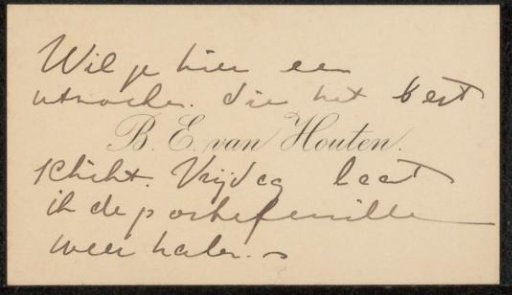 Wil je hier een
uitzoeken. die het best
B. E. van Houten.
schikt. Vrijdag laat
ik de portefeuille
weer halen.